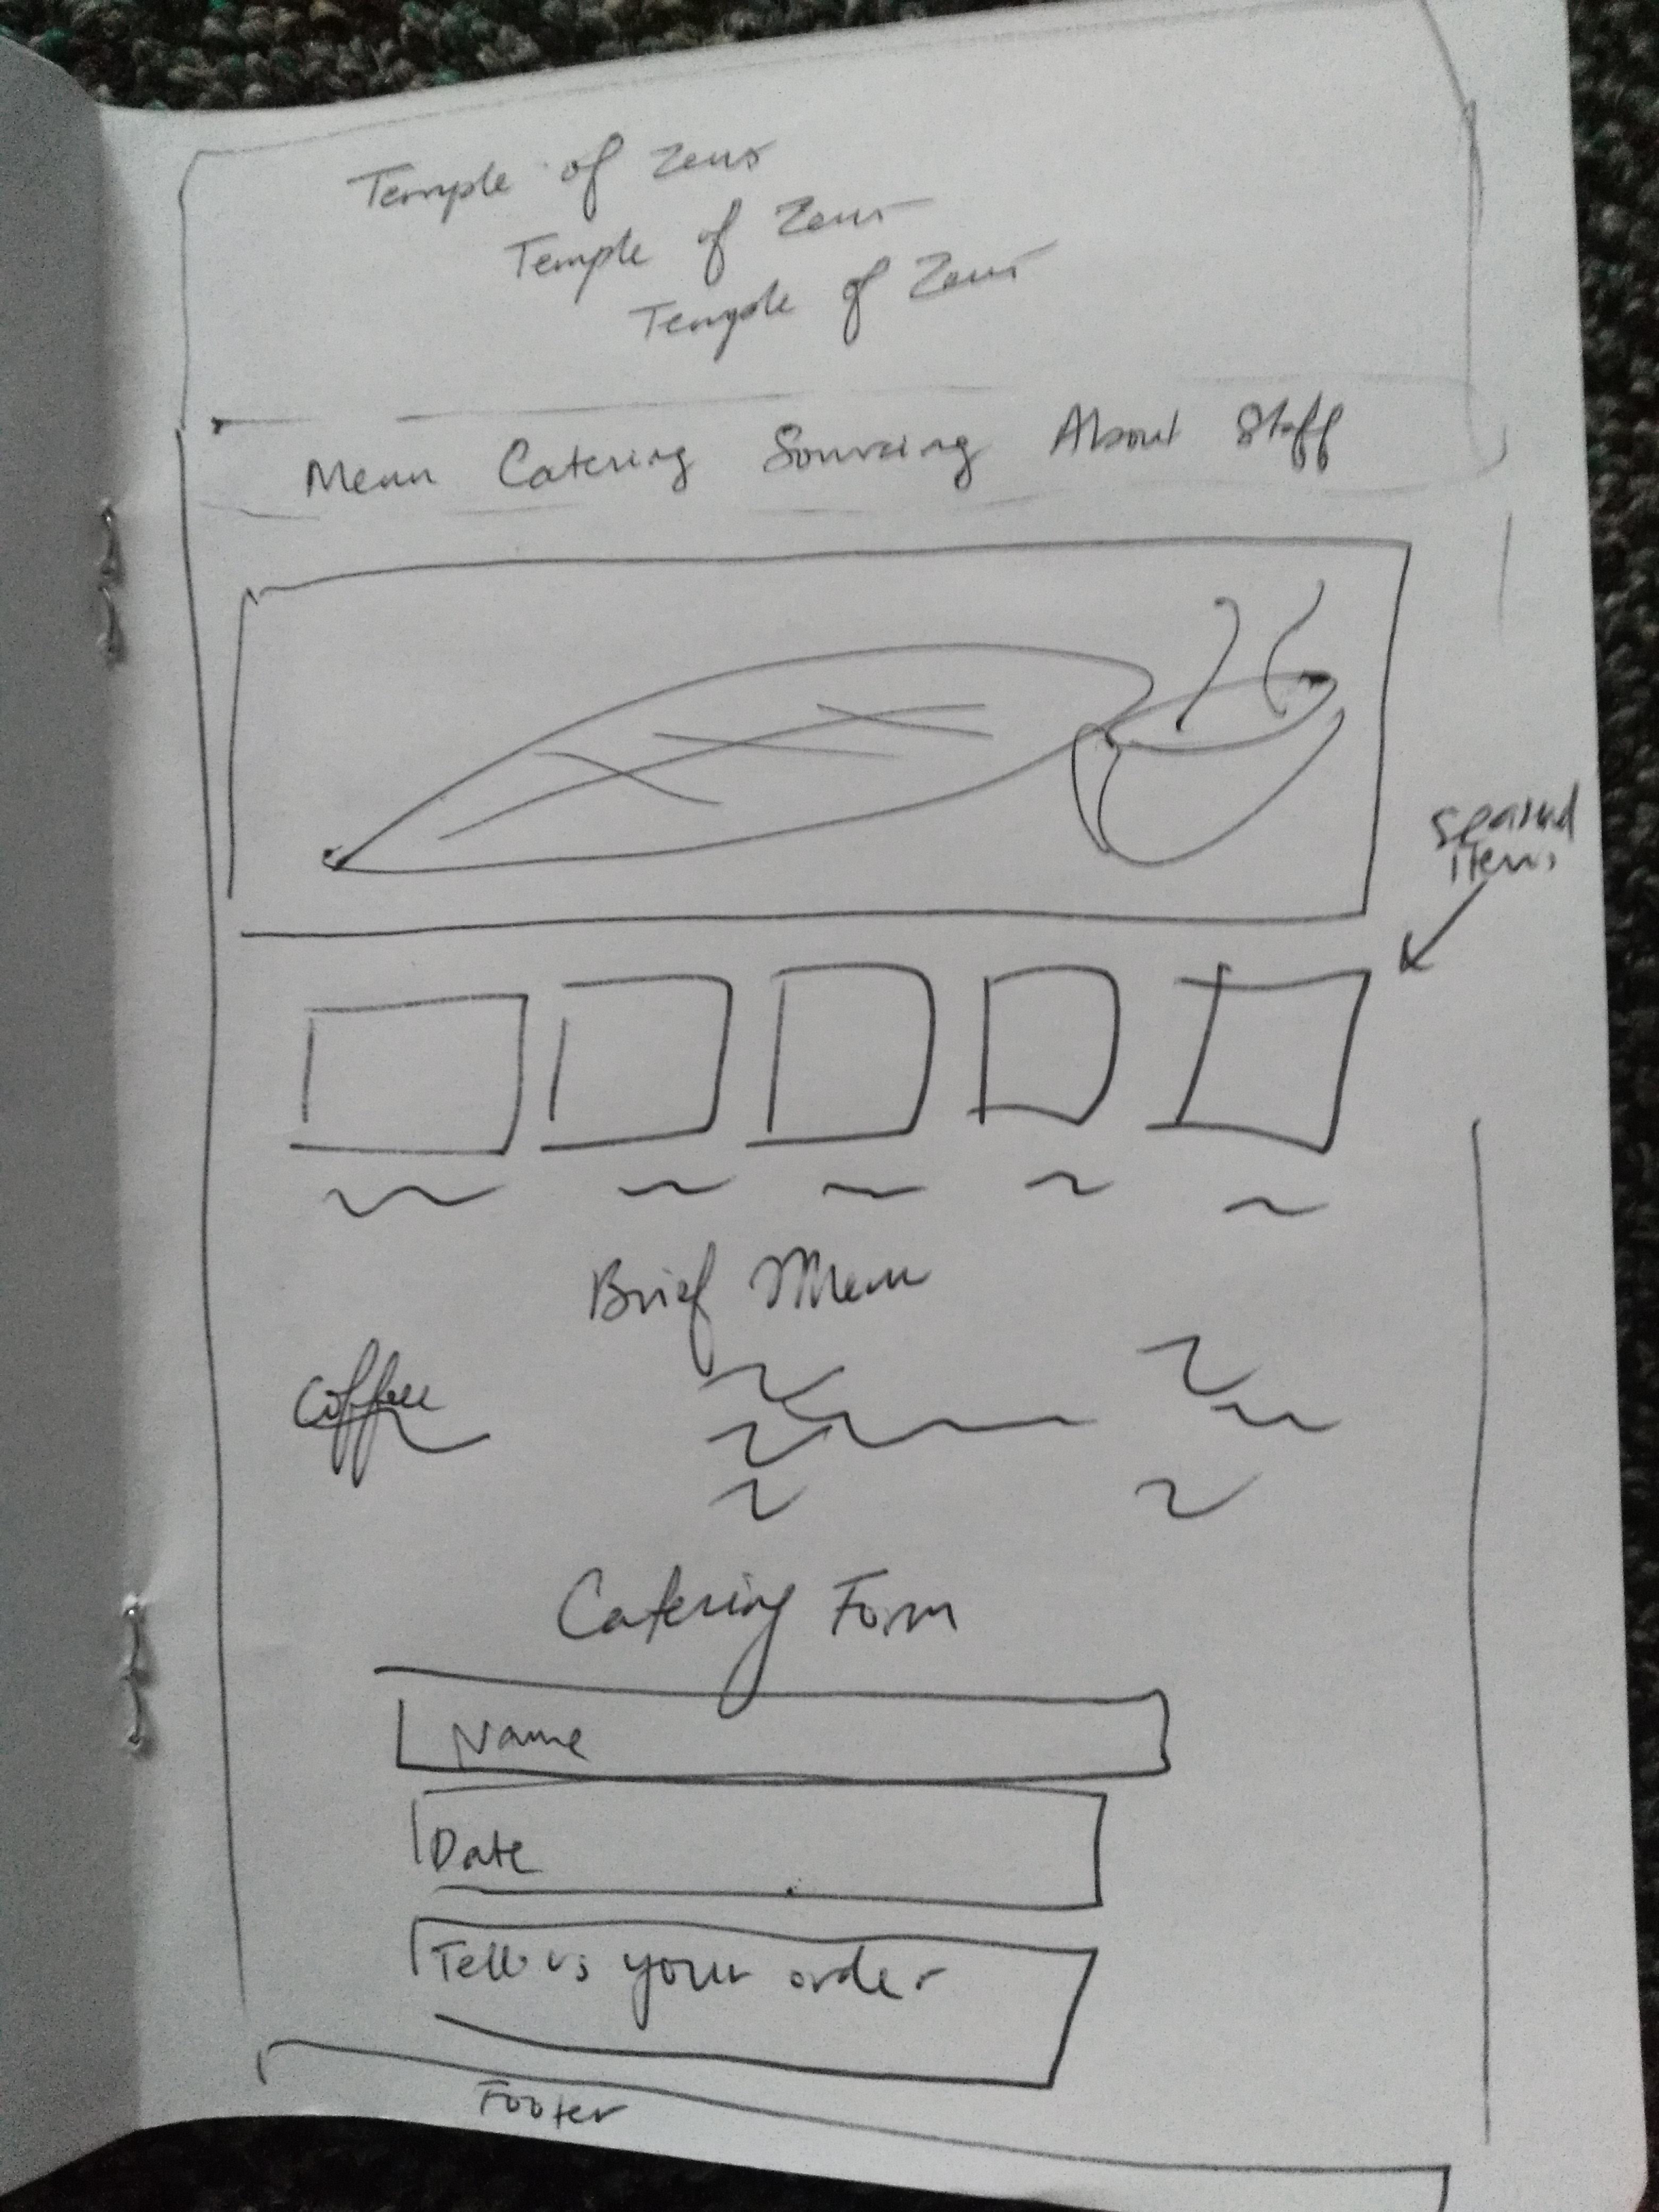 Temple of Zeus
Temple of Zeus
Temple of Zeus
Menu Catering Sourcing About Staff
items
Brief Menu
Coffee
Catering Form
Name
Date
Tell us your order
Footer